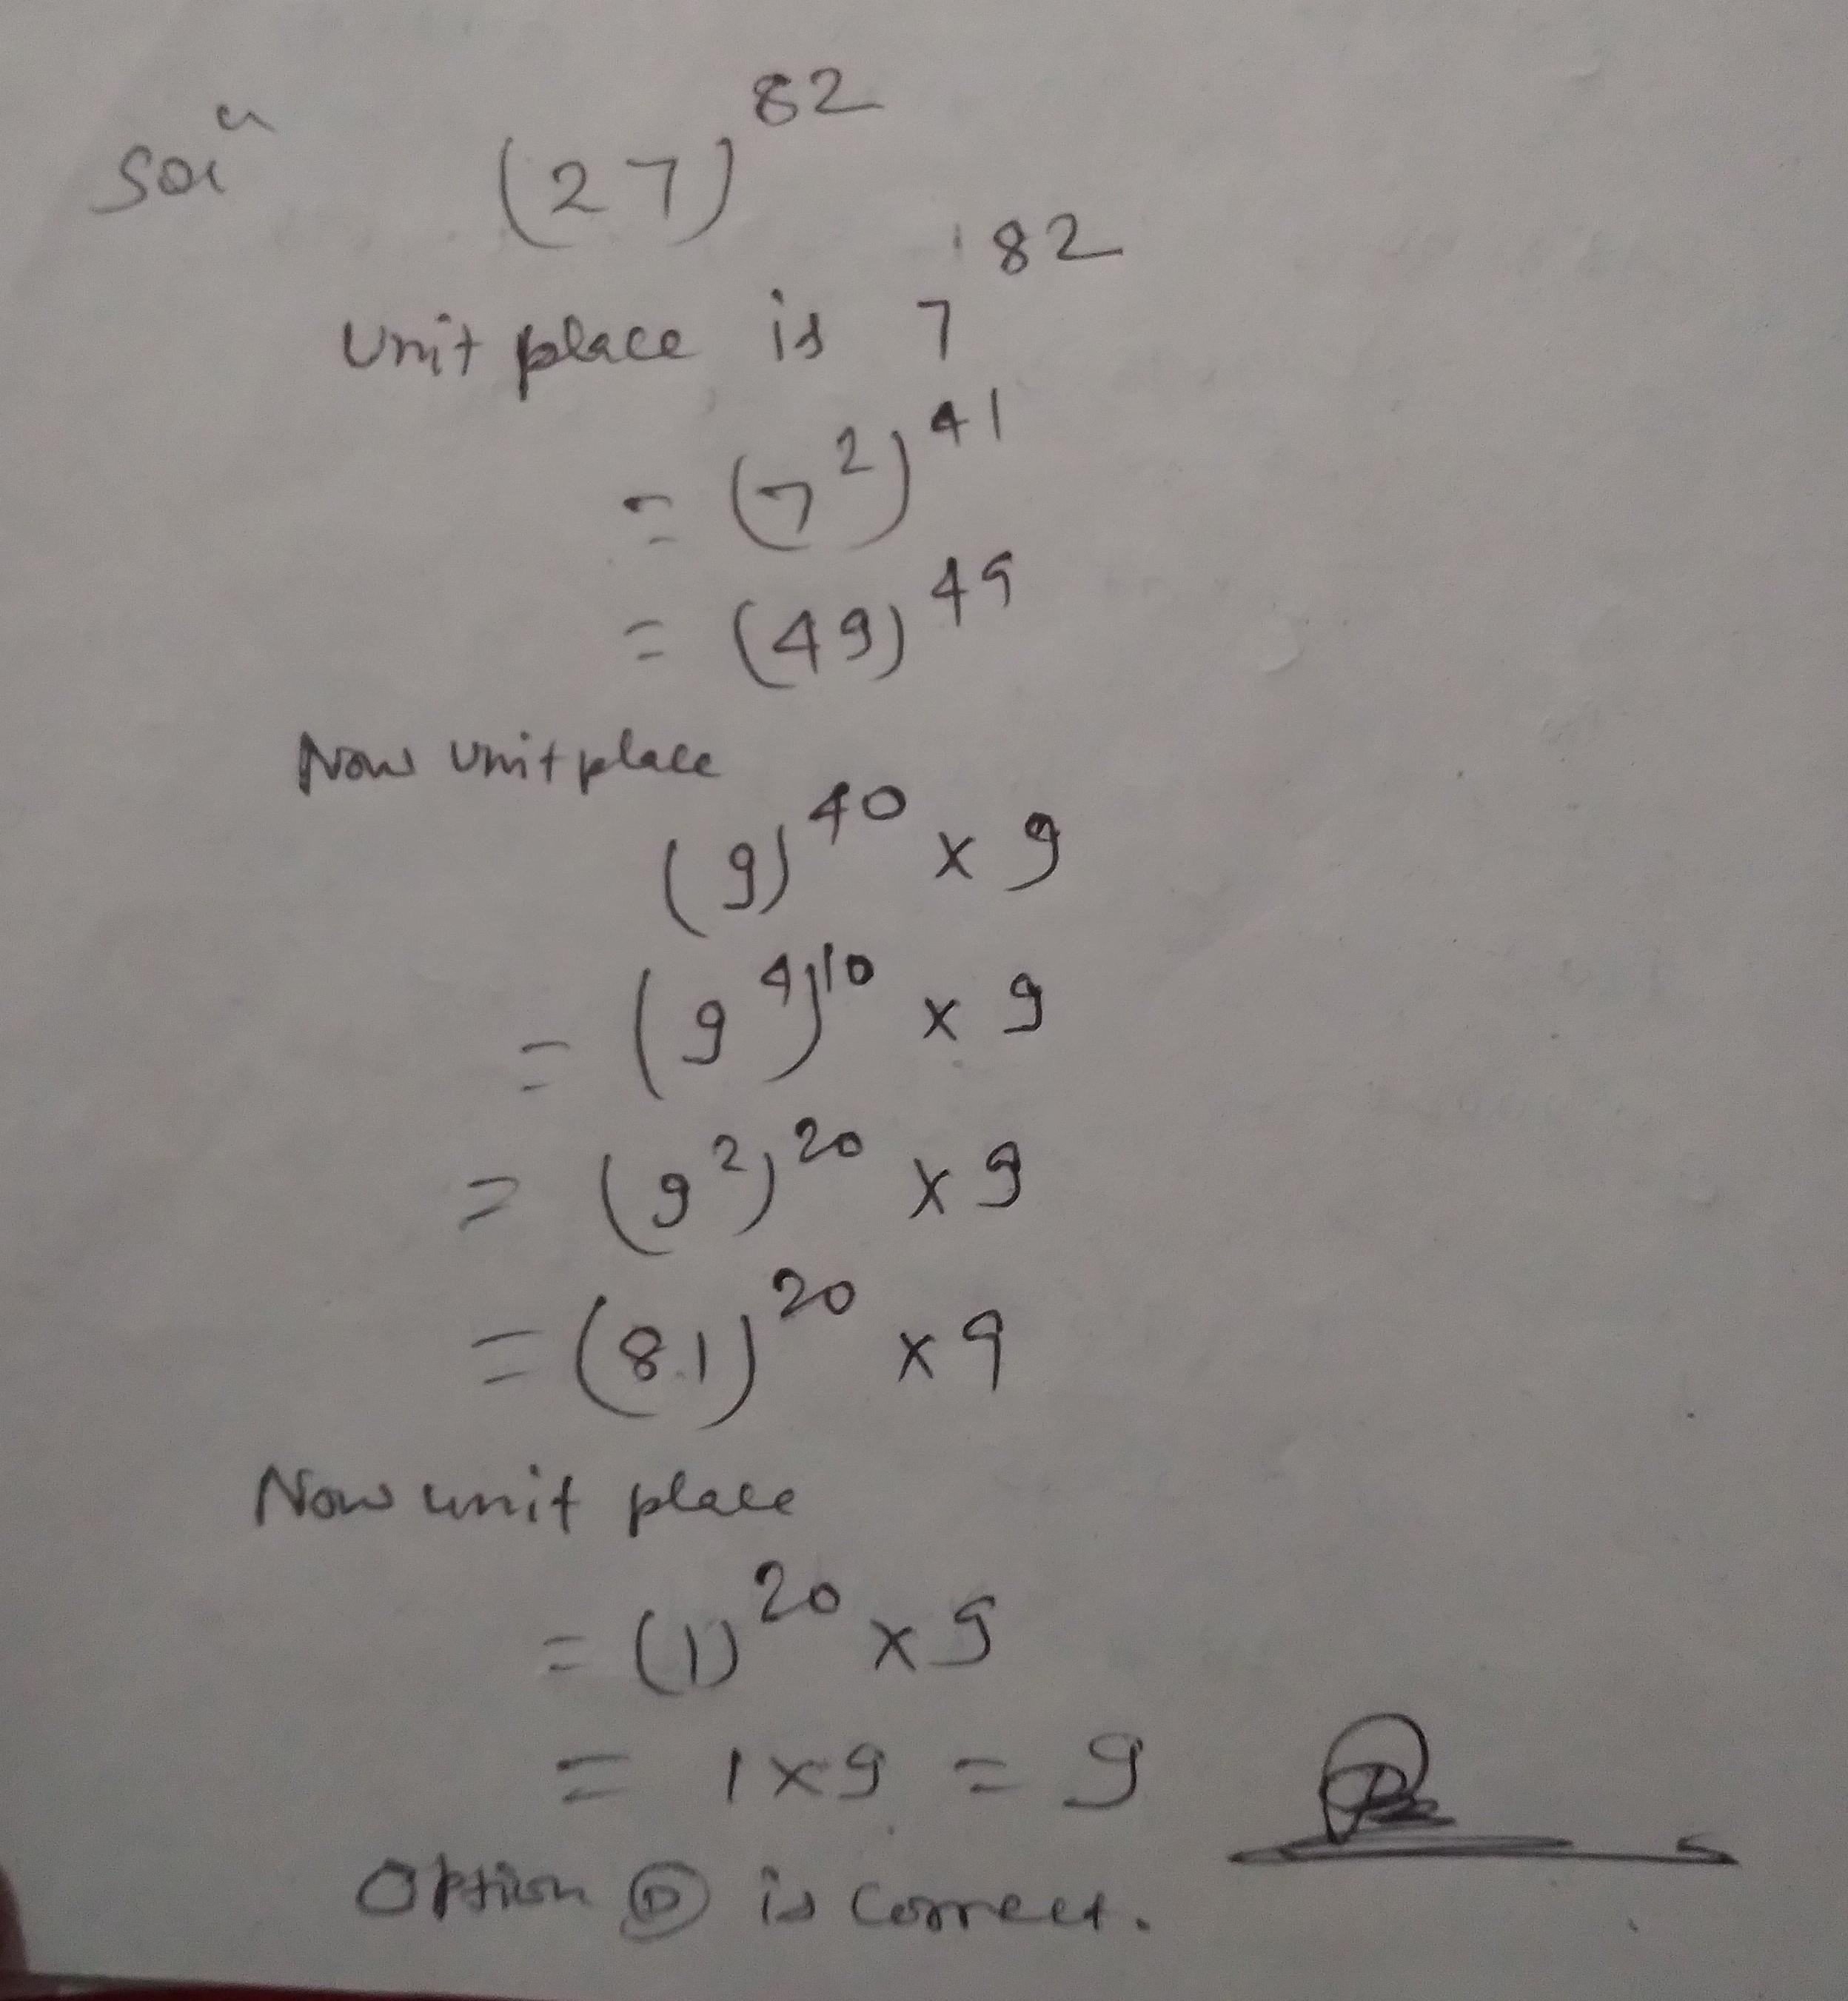 Solⁿ (27)^82
Unit place is 7^82
= (7^2)^41
= (49)^49
Now unit place
(9)^40 × 9
= (9^4)^10 × 9
= (9^2)^20 × 9
= (81)^20 × 9
Now unit place
= (1)^20 × 9
= 1×9 = 9
Option Ⓓ is correct.